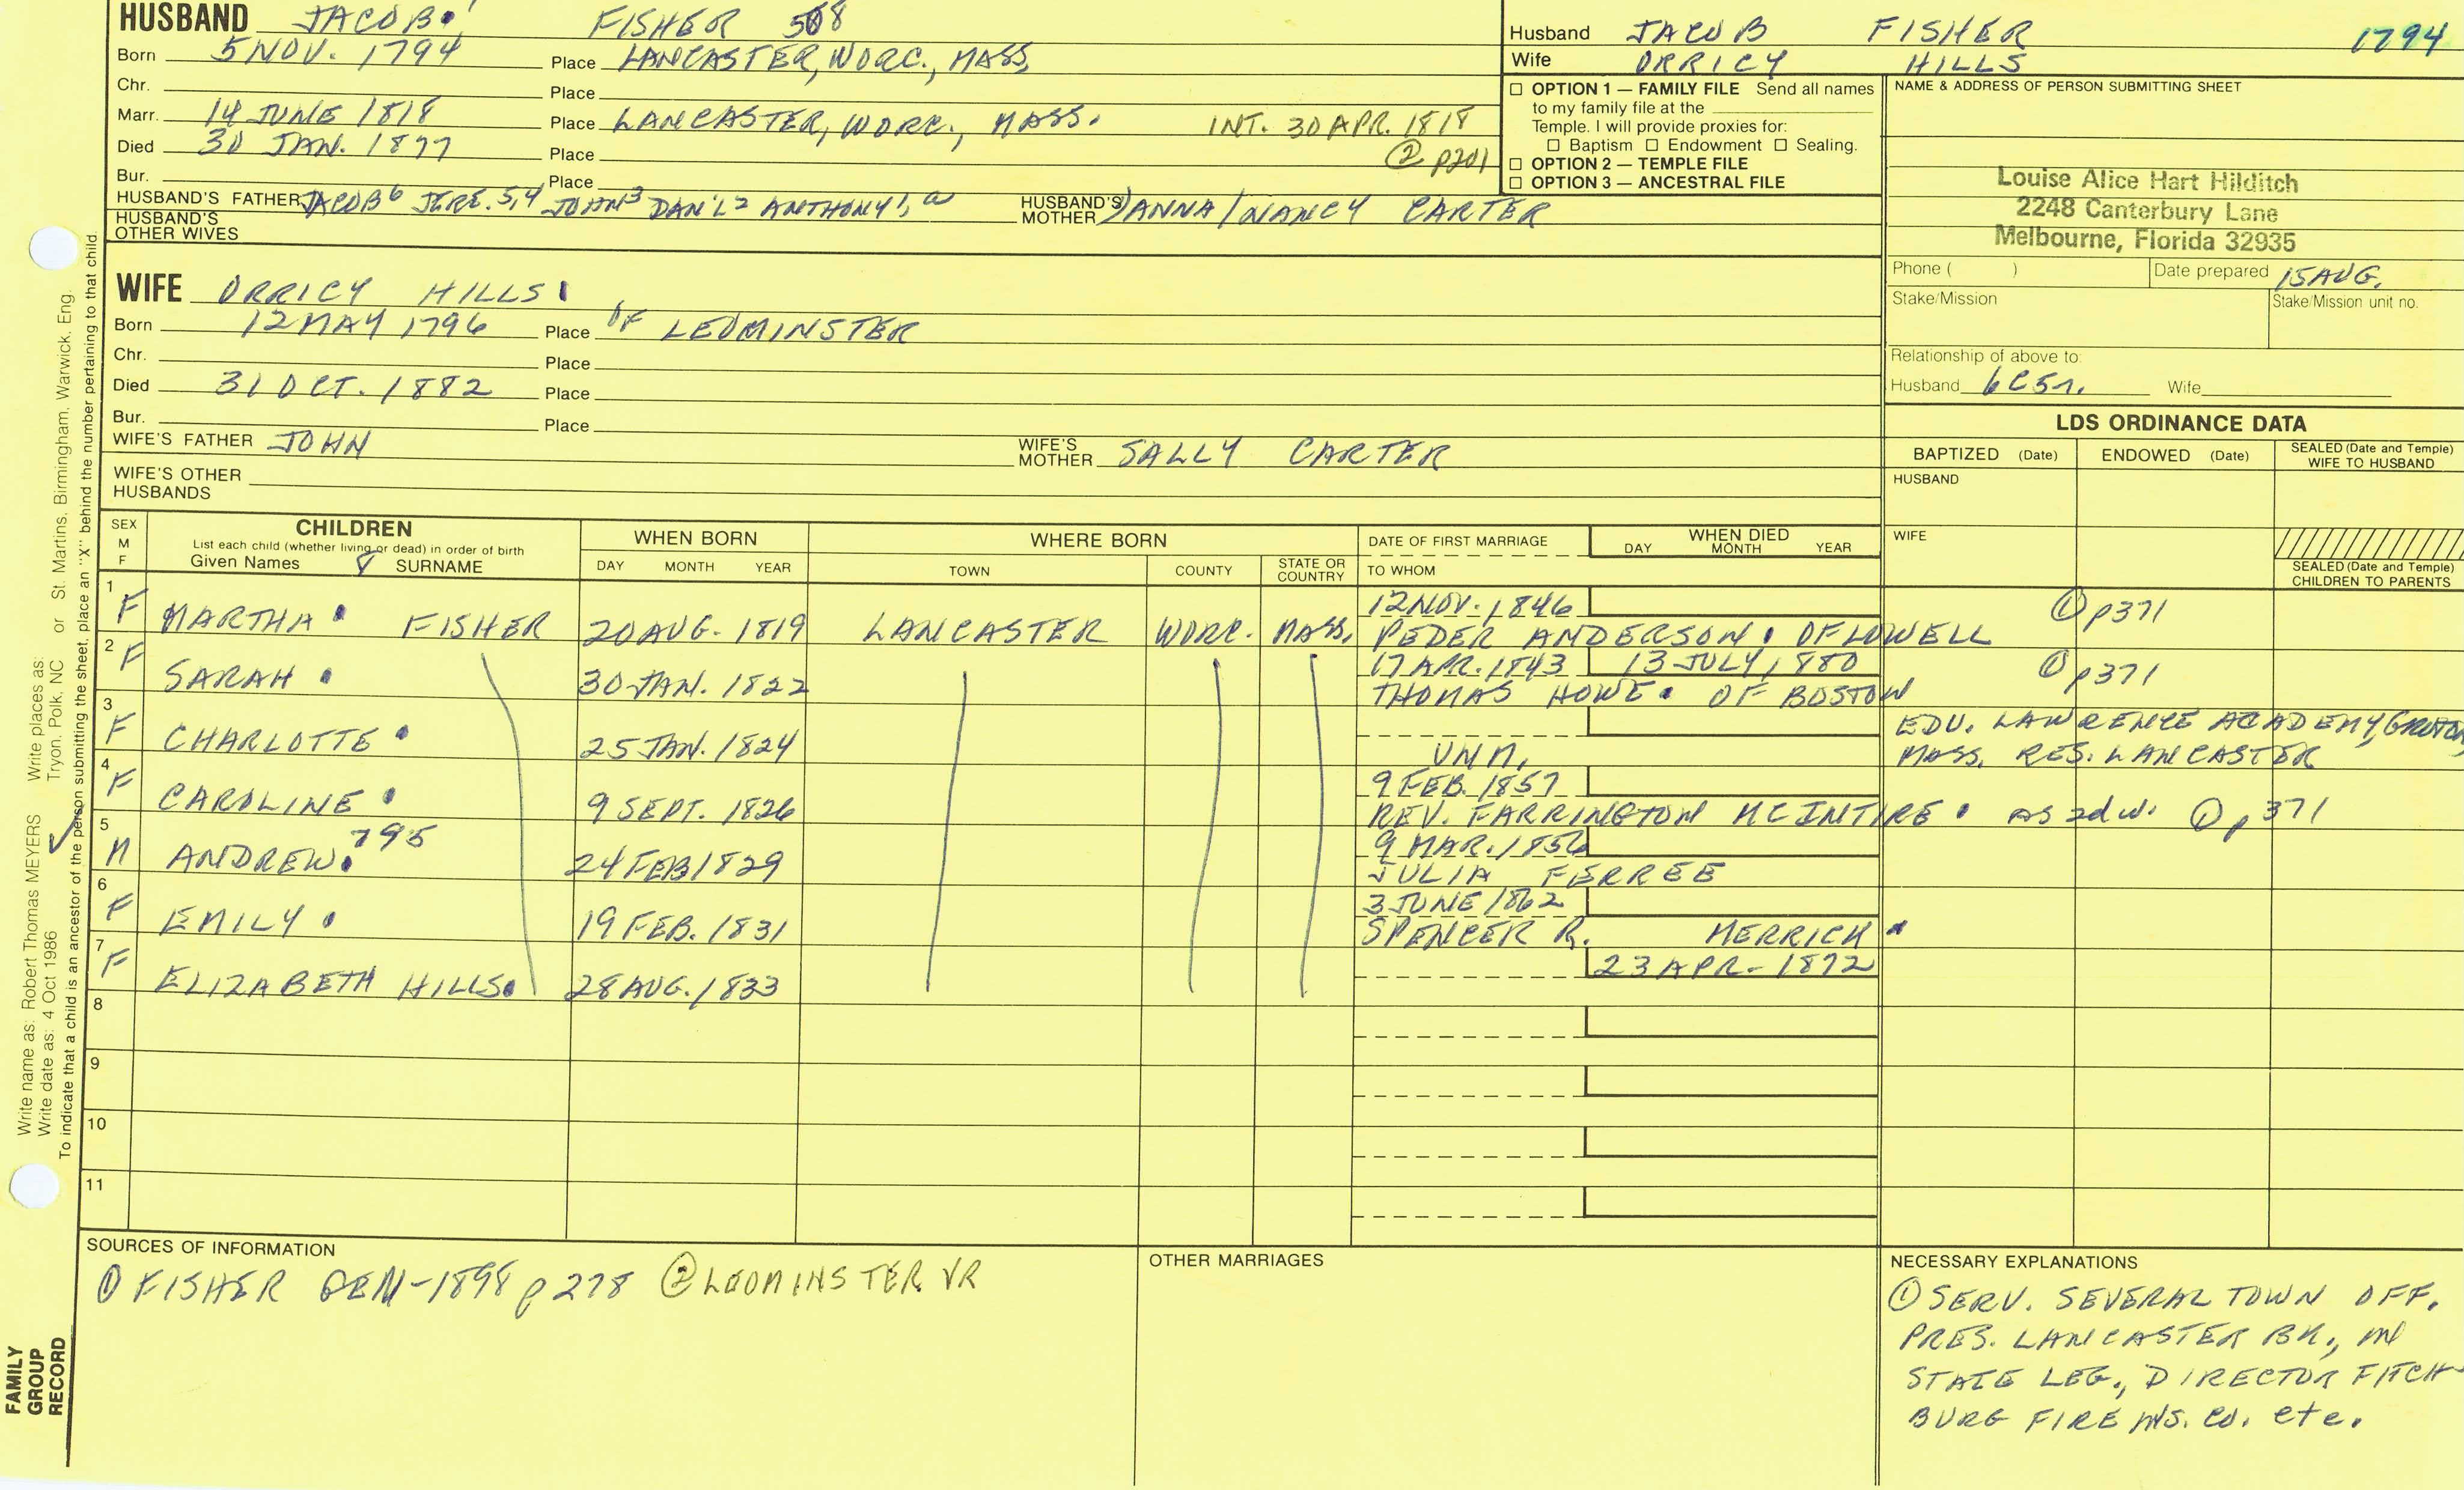 HUSBAND JACOB. FISHER 508
Born 5 NOV. 1794 Place LANCASTER, WORC., MASS.
Chr. Place
Marr. 14 JUNE 1818 Place LANCASTER, WORC., MASS. INT. 30 APR. 1818
Died 30 JAN. 1877 Place ② p201
Bur. Place
HUSBAND'S FATHER JACOB6 JERE.5,4 JOHN3 DAN'L2 ANTHONY1, a HUSBAND'S MOTHER ANNA/NANCY CARTER
HUSBAND'S OTHER WIVES
Husband JACOB FISHER 1794
Wife ORRICY HILLS
☐ OPTION 1 — FAMILY FILE Send all names
to my family file at the
Temple. I will provide proxies for:
☐ Baptism ☐ Endowment ☐ Sealing.
☐ OPTION 2 — TEMPLE FILE
☐ OPTION 3 — ANCESTRAL FILE
NAME & ADDRESS OF PERSON SUBMITTING SHEET
Louise Alice Hart Hilditch
2248 Canterbury Lane
Melbourne, Florida 32935
Phone ( ) Date prepared 15 AUG.
Stake/Mission Stake/Mission unit no.
Relationship of above to:
Husband 6C5r. Wife
WIFE ORRICY HILLS.
Born 12 MAY 1796 Place OF LEOMINSTER
Chr. Place
Died 31 OCT. 1882 Place
Bur. Place
WIFE'S FATHER JOHN WIFE'S MOTHER SALLY CARTER
WIFE'S OTHER HUSBANDS
LDS ORDINANCE DATA
BAPTIZED (Date) ENDOWED (Date) SEALED (Date and Temple) WIFE TO HUSBAND
HUSBAND
WIFE
SEALED (Date and Temple) CHILDREN TO PARENTS
SEX M F
CHILDREN
List each child (whether living or dead) in order of birth
Given Names & SURNAME
WHEN BORN
DAY MONTH YEAR
WHERE BORN
TOWN COUNTY STATE OR COUNTRY
DATE OF FIRST MARRIAGE
TO WHOM
WHEN DIED
DAY MONTH YEAR
1 F MARTHA. FISHER 20 AUG. 1819 LANCASTER WORC. MASS. 12 NOV. 1846 ① p371
PEDER ANDERSON. OF LOWELL
2 F SARAH. 30 JAN. 1822 17 APR. 1843 13 JULY 1880 ① p371
THOMAS HOWE. OF BOSTON
3 F CHARLOTTE. 25 JAN. 1824 UNM. EDU. LAWRENCE ACADEMY, GROTON
MASS. RES. LANCASTER
4 F CAROLINE. 9 SEPT. 1826 9 FEB. 1857
REV. FARRINGTON MCINTIRE. as 2d w. ① p371
5 M ANDREW. 795 24 FEB 1829 9 MAR. 1856
JULIA FERREE
6 F EMILY. 19 FEB. 1831 3 JUNE 1862
SPENCER R. MERRICK.
7 F ELIZABETH HILLS. 28 AUG. 1833 23 APR. 1872
8
9
10
11
SOURCES OF INFORMATION
① FISHER GEN-1898 p278 ② LEOMINSTER VR
OTHER MARRIAGES
NECESSARY EXPLANATIONS
① SERV. SEVERAL TOWN OFF.
PRES. LANCASTER BK., IN
STATE LEG., DIRECTOR FITCH-
BURG FIRE INS. CO. etc.
Write name as: Robert Thomas MEYERS Write places as: Tryon, Polk, NC or St. Martins, Birmingham, Warwick, Eng.
Write date as: 4 Oct 1986
To indicate that a child is an ancestor of the person submitting the sheet, place an "X" behind the number pertaining to that child.
FAMILY
GROUP
RECORD